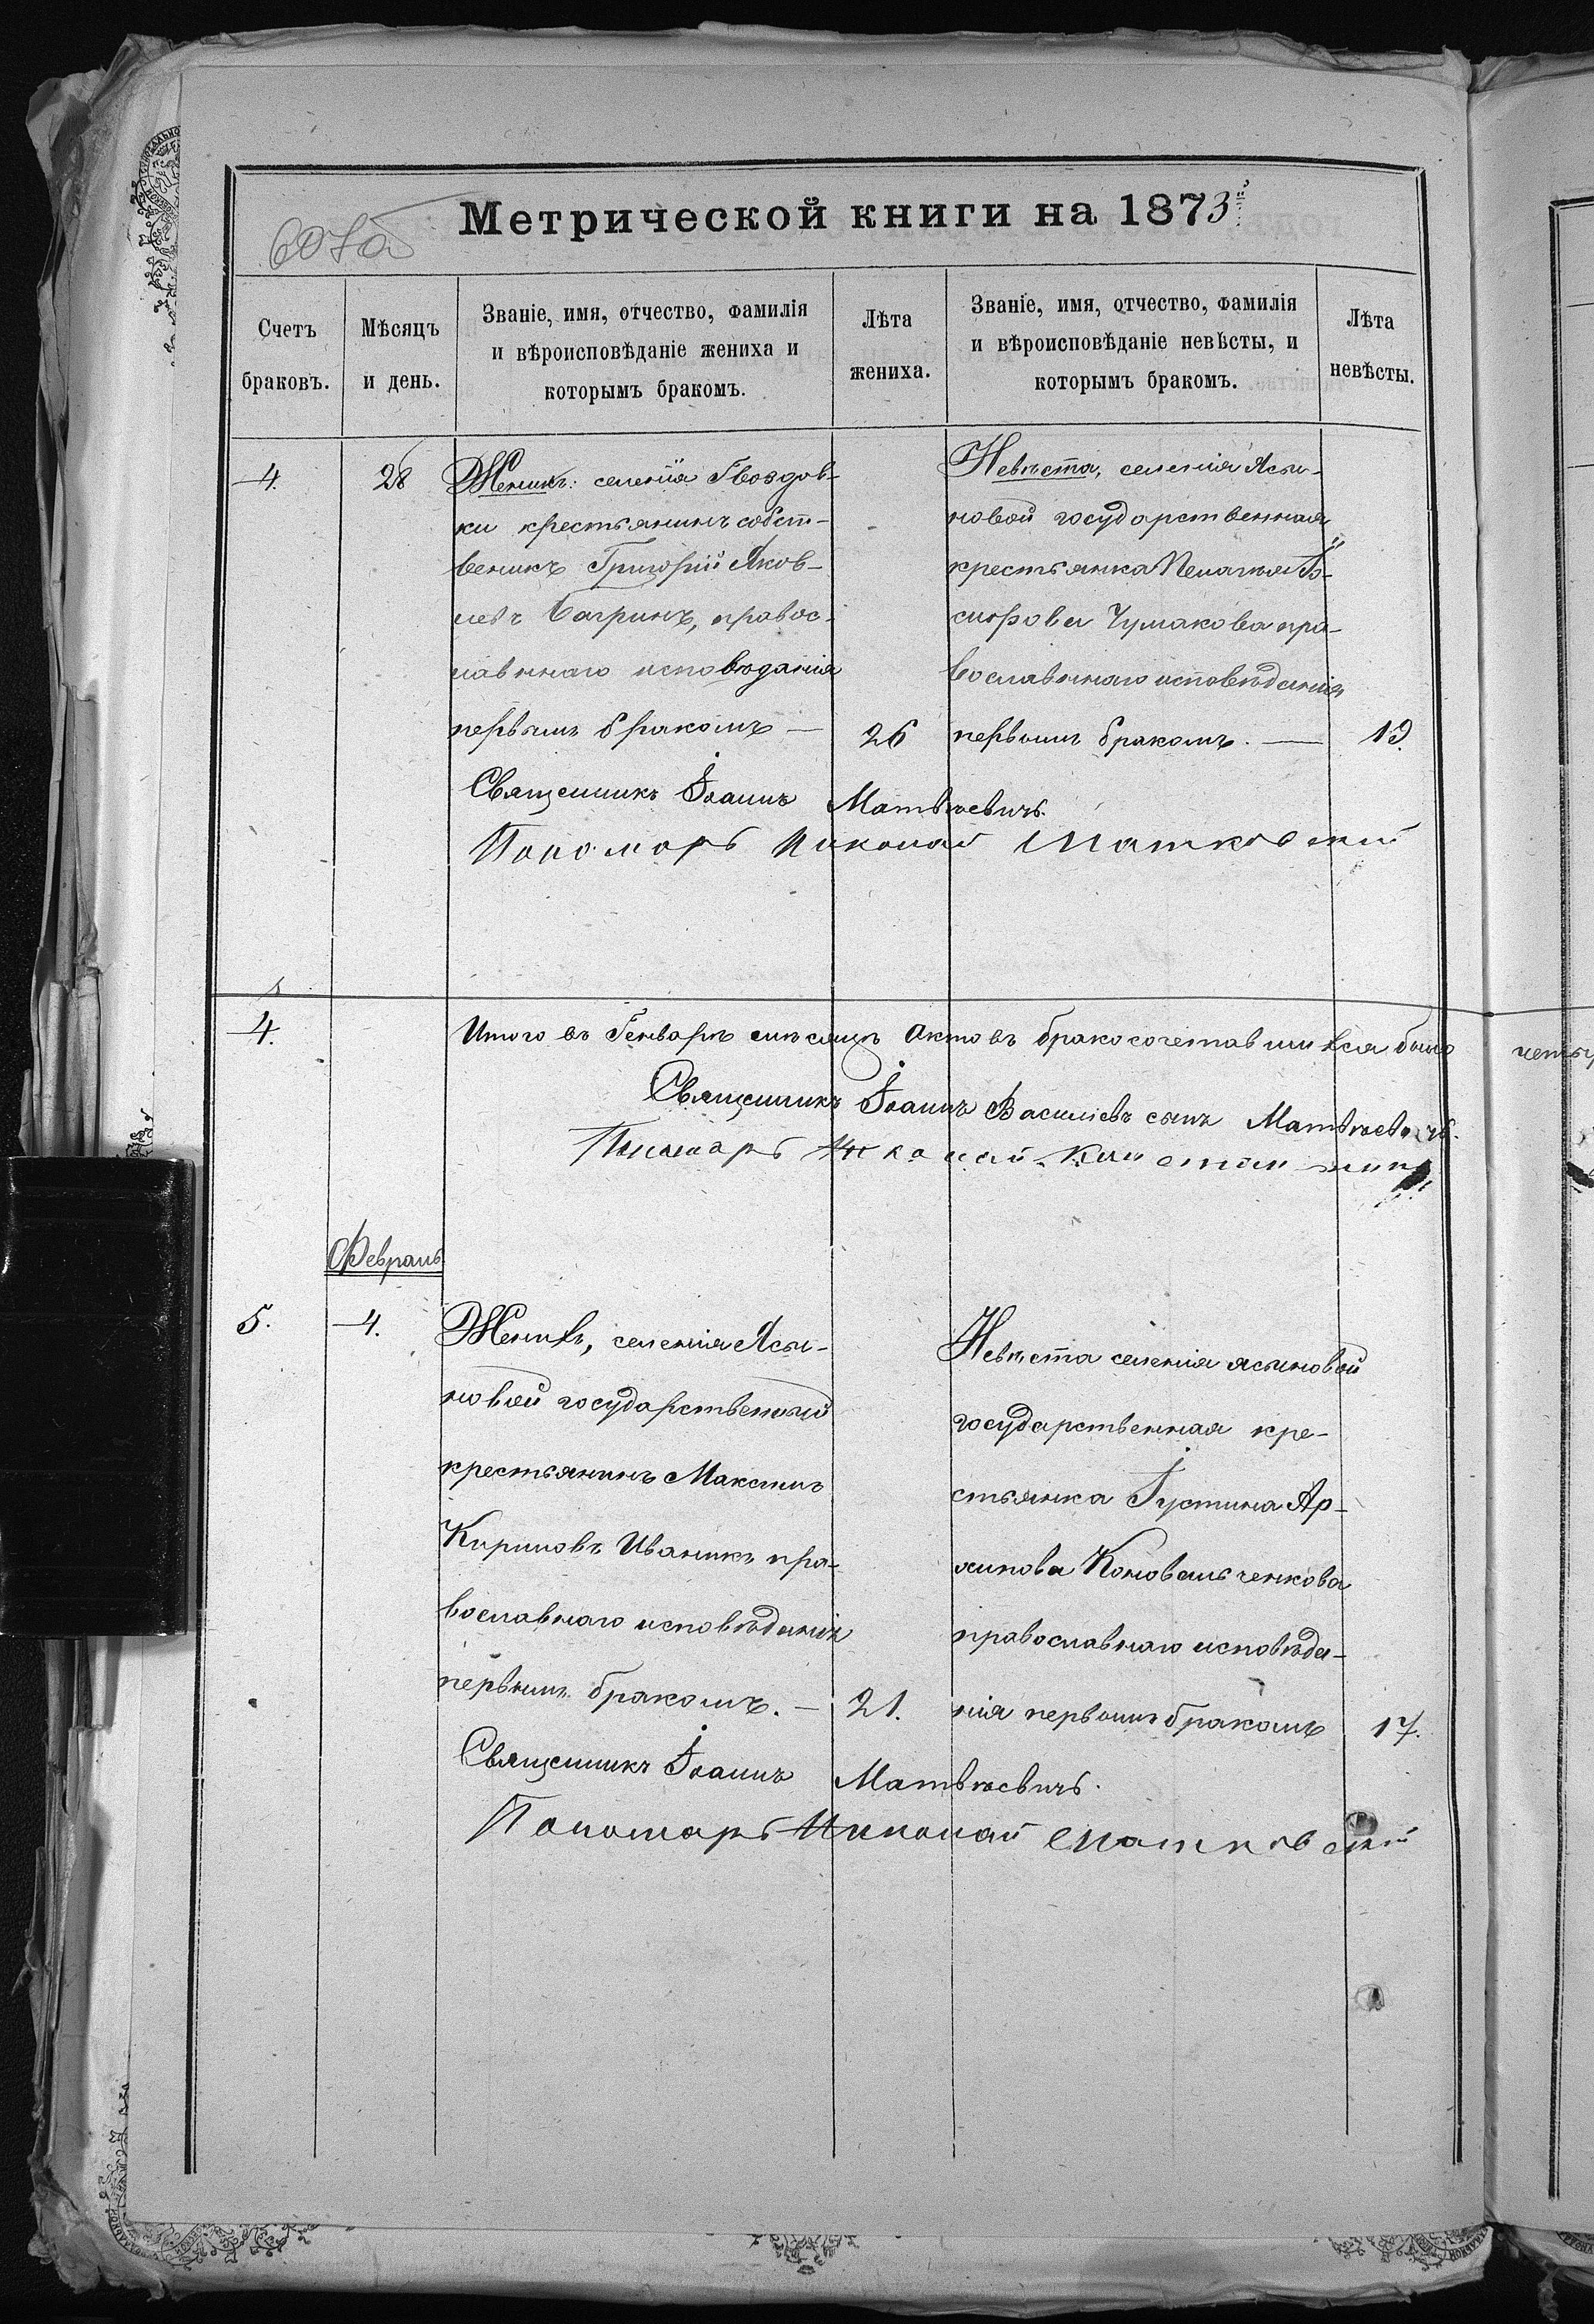 607об
Метрической книги на 1873й
Счетъ браковъ.
Мѣсяцъ и день.
Званіе, имя, отчество, фамилія
и вѣроисповѣданіе жениха и
которымъ бракомъ.
Лѣта жениха.
Званіе, имя, отчество, фамилія
и вѣроисповѣданіе невѣсты, и
которымъ бракомъ.
Лѣта невѣсты.
4. 28
Женихъ: селенія Гвоздов-
ки крестьянинъ собст-
веникъ Григорій Яков-
левъ Багринъ, правос-
лавнаго исповѣданія
первымъ бракомъ — 26
Невѣста, селенія Ясы-
новой государственная
крестьянка Пелагія Іо-
сифова Чумакова пра-
вославнаго исповѣданія
первымъ бракомъ. — 19.
Священникъ Іоаннъ Матвѣевичъ.
Пономарь Николай Матковскій
4. Итого въ Генварѣ мѣсяцѣ актовъ бракосочетавшихся было
Священникъ Іоаннъ Василіевъ сынъ Матвѣевичъ.
Пономарь Николай
Февраль
5. 4.
Женихъ, селенія Ясы-
новой государственый
крестьянинъ Максимъ
Кириловъ Иваникъ пра-
вославнаго исповѣданія
первымъ бракомъ. — 21.
Невѣста селенія ясыновой
государственная кре-
стьянка Іустина Ар-
хипова Коновальченкова
православнаго исповѣда-
нія первымъ бракомъ 17.
Священникъ Іоаннъ Матвѣевичъ.
Пономарь Николай Матковскій